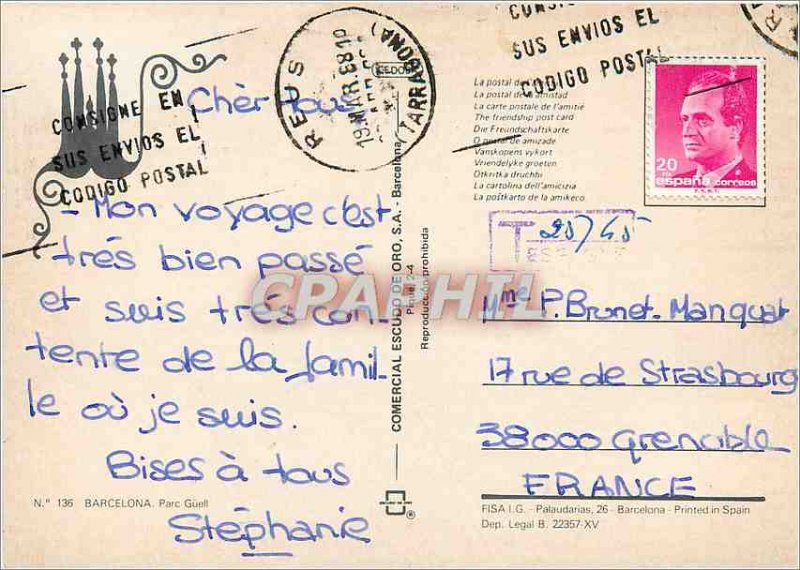 CONSIGNE EN
SUS ENVIOS EL
CODIGO POSTAL
REUS
19 MAR 88 10
(TARRAGONA)
CONSIGNE
SUS ENVIOS EL
CODIGO POSTAL
Chèr tous
- Mon voyage c'est
trés bien passé
et suis trés con-
tente de la famil-
le où je suis.
Bises à tous
Stéphanie
N.° 136 BARCELONA. Parc Güell
COMERCIAL ESCUDO DE ORO, S.A. - Barcelona
2-4
Reproducción prohibida
La postal de
La postal de la amistad
La carte postale de l'amitié
The friendship post card
Die Freundschaftskarte
O postal de amizade
Vanskapens vykort
Vriendelyke groeten
Otkritka druchbi
La cartolina dell'amicizia
La postkarto de la amikeco
20
PTA
españa correos
F.N.M.T.
T 25/45
CPAPHIL
Mme P. Brunet-Manquat
17 rue de Strasbourg
38000 Grenoble
FRANCE
FISA I.G. - Palaudarias, 26 - Barcelona - Printed in Spain
Dep. Legal B. 22357-XV